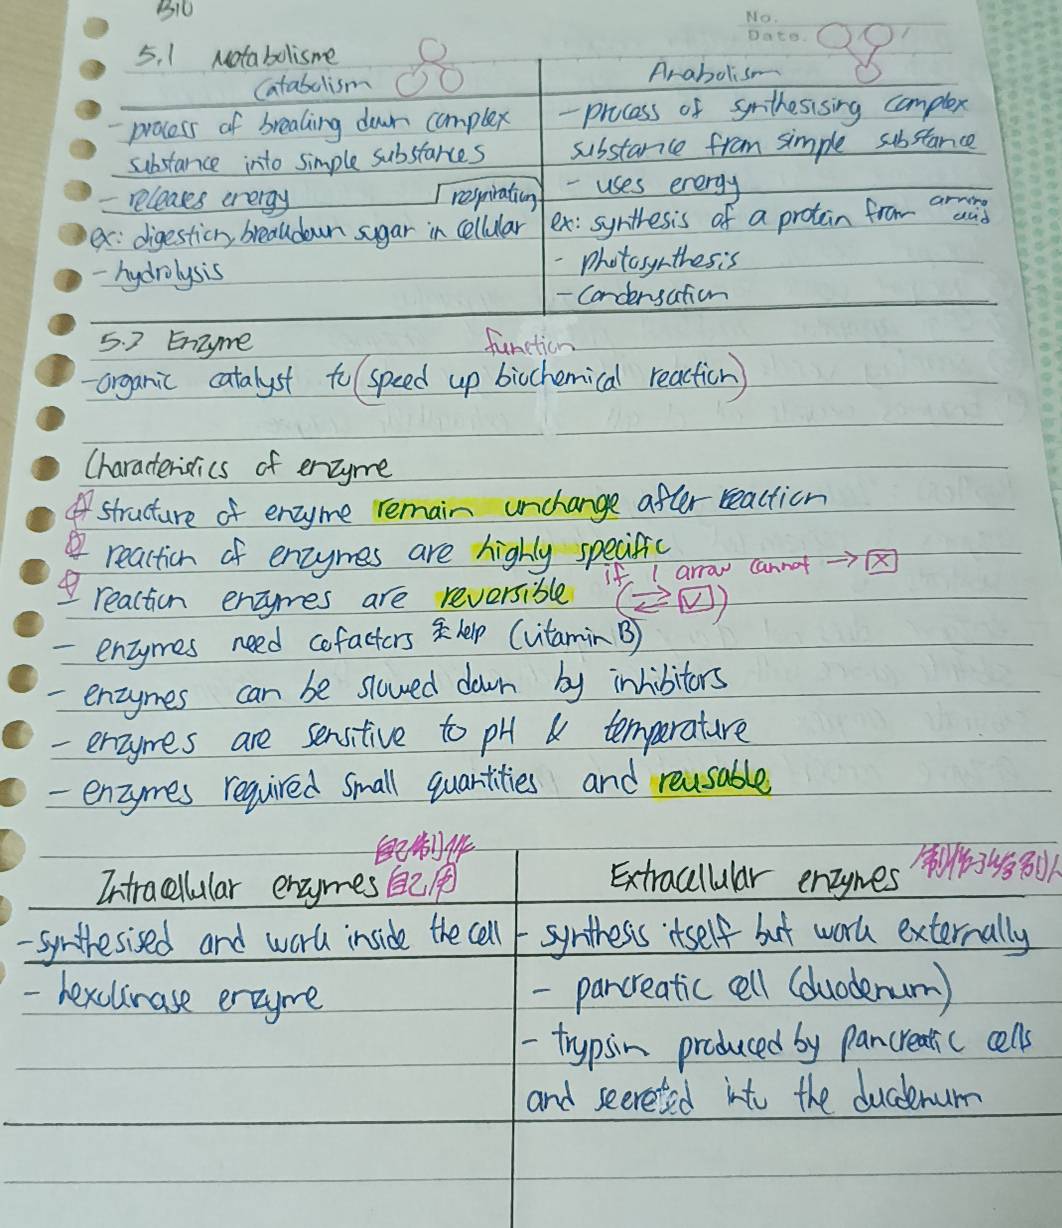 BIO
No.
Date.
5.1 Metabolisme
Catabolism
- process of breaking down complex
substance into simple substances
- releases energy
respiration
ex: digestion, breakdown sugar in cellular
- hydrolysis
Anabolism
- process of synthesising complex
substance from simple substance
- uses energy
ex: synthesis of a protein from amino acid
- photosynthesis
- condensation
5.2 Enzyme
function
- organic catalyst to (speed up biochemical reaction)
Characteristics of enzyme
structure of enzyme remain unchange after reaction
reaction of enzymes are highly specific
if 1 arrow cannot → ☒
reaction enzymes are reversible (⇄ ☑)
- enzymes need cofactors help (vitamin B)
- enzymes can be slowed down by inhibitors
- enzymes are sensitive to pH & temperature
- enzymes required small quantities and reusable
自己制作
Intracellular enzymes 自己用
- synthesised and work inside the cell
- hexokinase enzyme
Extracellular enzymes 制作给别人
- synthesis itself but work externally
- pancreatic cell (duodenum)
- trypsin produced by pancreatic cells
and secreted into the duodenum